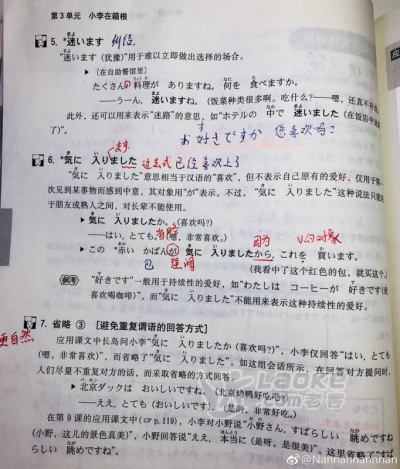 第3单元 小李在箱根
5. *迷います 纠结
"迷います(犹豫)"用于难以立即做出选择的场合。
▶ [在自助餐馆里]
たくさんの料理が ありますね。何を 食べますか。
——うーん，迷いますね。(饭菜种类很多啊。吃什么?——嗯，还真不
此外，还可以用来表示"迷路"的意思，如"ホテルの 中で 迷いました(在饭店中迷
了)"。
お好きですか 您喜欢吗?
6. *気に 入りました ます 过去式 已经喜欢上了
"気に 入りました"意思相当于汉语的"喜欢"，但不表示自己原有的爱好，仅用于第
次见到某事物而感到中意，其对象用"が"表示。不过，"気に 入りました"这种说法只能
于朋友或熟人之间，对长辈不能使用。
▶ 気に 入りましたか。(喜欢吗?)
——はい，とても。(嗯，非常喜欢。) 省略 因为
▶ この *赤い かばんが 気に 入りましたから，これを 買います。
包 (我看中了这个红色的包，就买这个。)
参考 "好きです"一般用于持续性的爱好，如"わたしは コーヒーが 好きです(我
喜欢喝咖啡)"，而"気に 入りました"不能用来表示这种持续性的爱好。
7. 省略 ③ [避免重复谓语的回答方式]
更自然
应用课文中长岛问小李"気に 入りましたか(喜欢吗?)"，小李仅回答"はい，とても
(嗯，非常喜欢)"，而省略了"気に 入りました"。如这组会话所示，在回答对方提问时，
人们尽量不重复对方的话，而采取省略的方式回答
▶ 北京ダックは おいしいですね。(北京烤鸭好吃吧?)
——ええ，とても(おいしいです)。(是的，非常好吃。)
在第9课的应用课文中(☞p.119)，小李对小野说"小野さん，すばらしい 眺めですね
(小野，这儿的景色真美)"，小野回答说"ええ，本当に(是呀，是很美)"，这里省略了"すば
らしい 眺めですね"。
LAOKE.com老客
@Nannannannnan